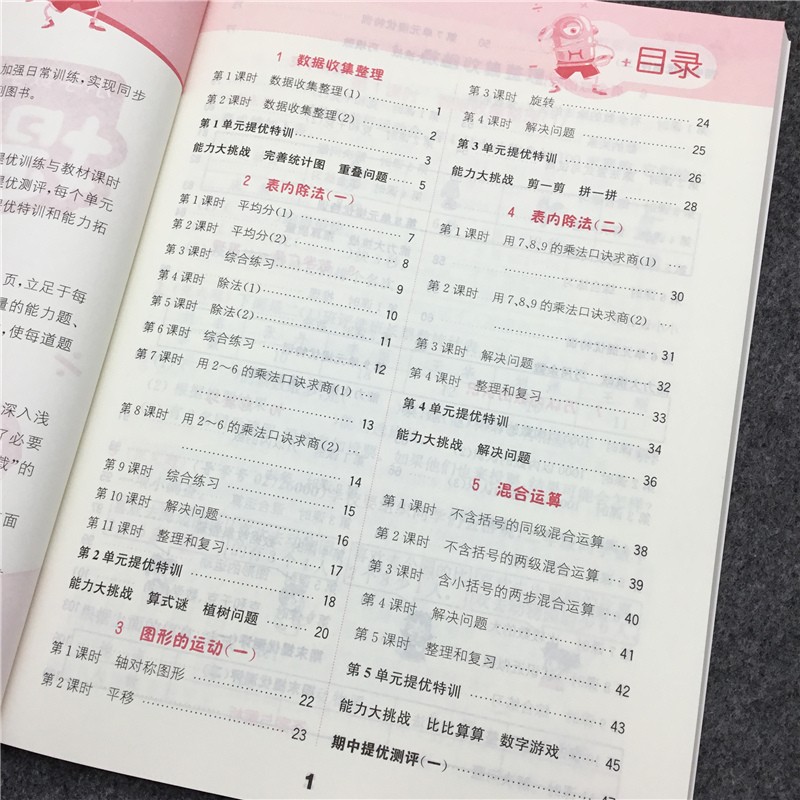 加强日常训练，实现同步
图书。
优训练与教材课时
优测评，每个单元
优特训和能力拓
页，立足于每
量的能力题、
，使每道题
深入浅
了必要
”的
页面
+目录
1 数据收集整理
第1课时 数据收集整理(1) 1
第2课时 数据收集整理(2) 2
第1单元提优特训 3
能力大挑战 完善统计图 重叠问题 5
2 表内除法(一)
第1课时 平均分(1) 7
第2课时 平均分(2) 8
第3课时 综合练习 9
第4课时 除法(1) 10
第5课时 除法(2) 11
第6课时 综合练习 12
第7课时 用2～6的乘法口诀求商(1)
13
第8课时 用2～6的乘法口诀求商(2)
14
第9课时 综合练习 15
第10课时 解决问题 16
第11课时 整理和复习 17
第2单元提优特训 18
能力大挑战 算式谜 植树问题 20
3 图形的运动(一)
第1课时 轴对称图形 22
第2课时 平移 23
第3课时 旋转 24
第4课时 解决问题 25
第3单元提优特训 26
能力大挑战 剪一剪 拼一拼 28
4 表内除法(二)
第1课时 用7、8、9的乘法口诀求商(1) …
30
第2课时 用7、8、9的乘法口诀求商(2) …
31
第3课时 解决问题 32
第4课时 整理和复习 33
第4单元提优特训 34
能力大挑战 解决问题 36
5 混合运算
第1课时 不含括号的同级混合运算 … 38
第2课时 不含括号的两级混合运算 … 39
第3课时 含小括号的两步混合运算 … 40
第4课时 解决问题 41
第5课时 整理和复习 42
第5单元提优特训 43
能力大挑战 比比算算 数字游戏 45
期中提优测评(一) 47
1